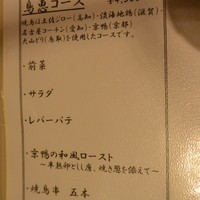 鳥恵コース
焼鳥は土佐ジロー(高知)・淡海地鶏(滋賀)・
名古屋コーチン(愛知)・京鴨(京都)
大山どり(鳥取)を使用したコースです。
・前菜
・サラダ
・レバーパテ
・京鴨の和風ロースト
〜半熟卵とし唐、焼き葱を添えて〜
・焼鳥串 五本